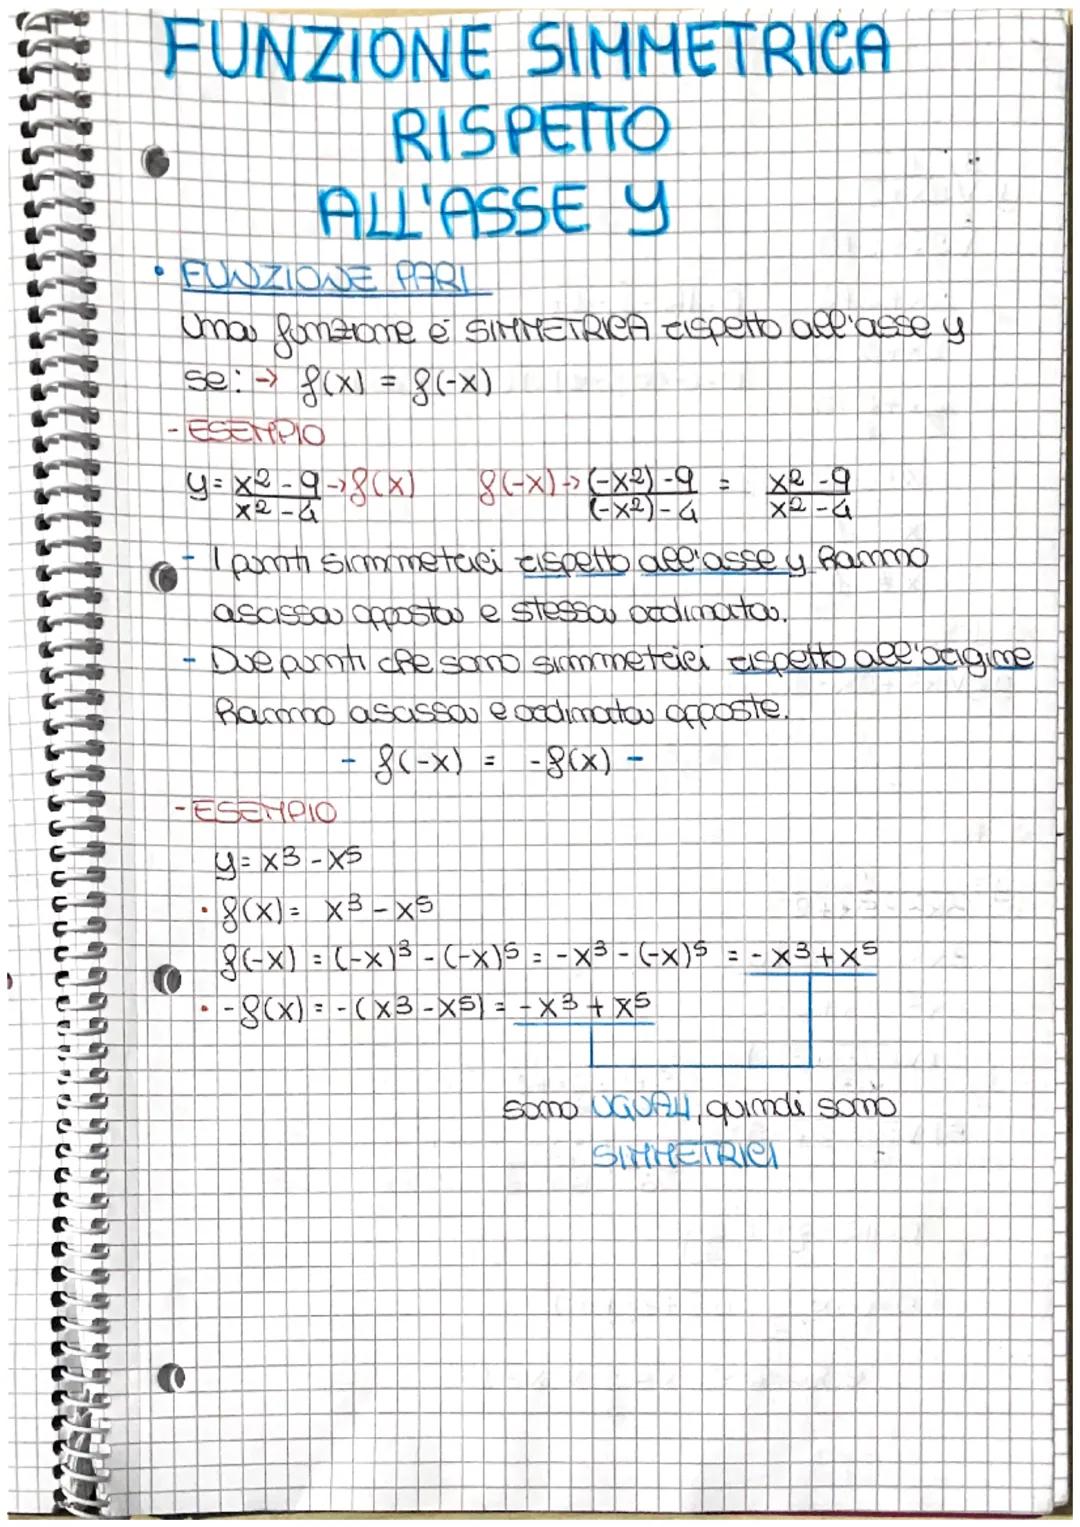 FUNZIONE SIMMETRICA
RISPETTO
ALL'ASSE Y
• FUNZIONE PARI
Una funzione è SIMMETRICA rispetto all'asse y
se: → f(x) = f(-x)
- ESEMPIO
y = x² - 9 / x² - 4 → f(x) f(-x) → (-x²) - 9 / (-x²) - 4 = x² - 9 / x² - 4
- I punti simmetrici rispetto all'asse y hanno
ascissa opposta e stessa ordinata.
- Due punti che sono simmetrici rispetto all'origine
hanno ascissa e ordinata opposte.
- f(-x) = -f(x) -
- ESEMPIO
y = x³ - x⁵
• f(x) = x³ - x⁵
f(-x) = (-x)³ - (-x)⁵ = -x³ - (-x)⁵ = - x³ + x⁵
• - f(x) = - (x³ - x⁵) = - x³ + x⁵
sono UGUALI, quindi sono
SIMMETRICI